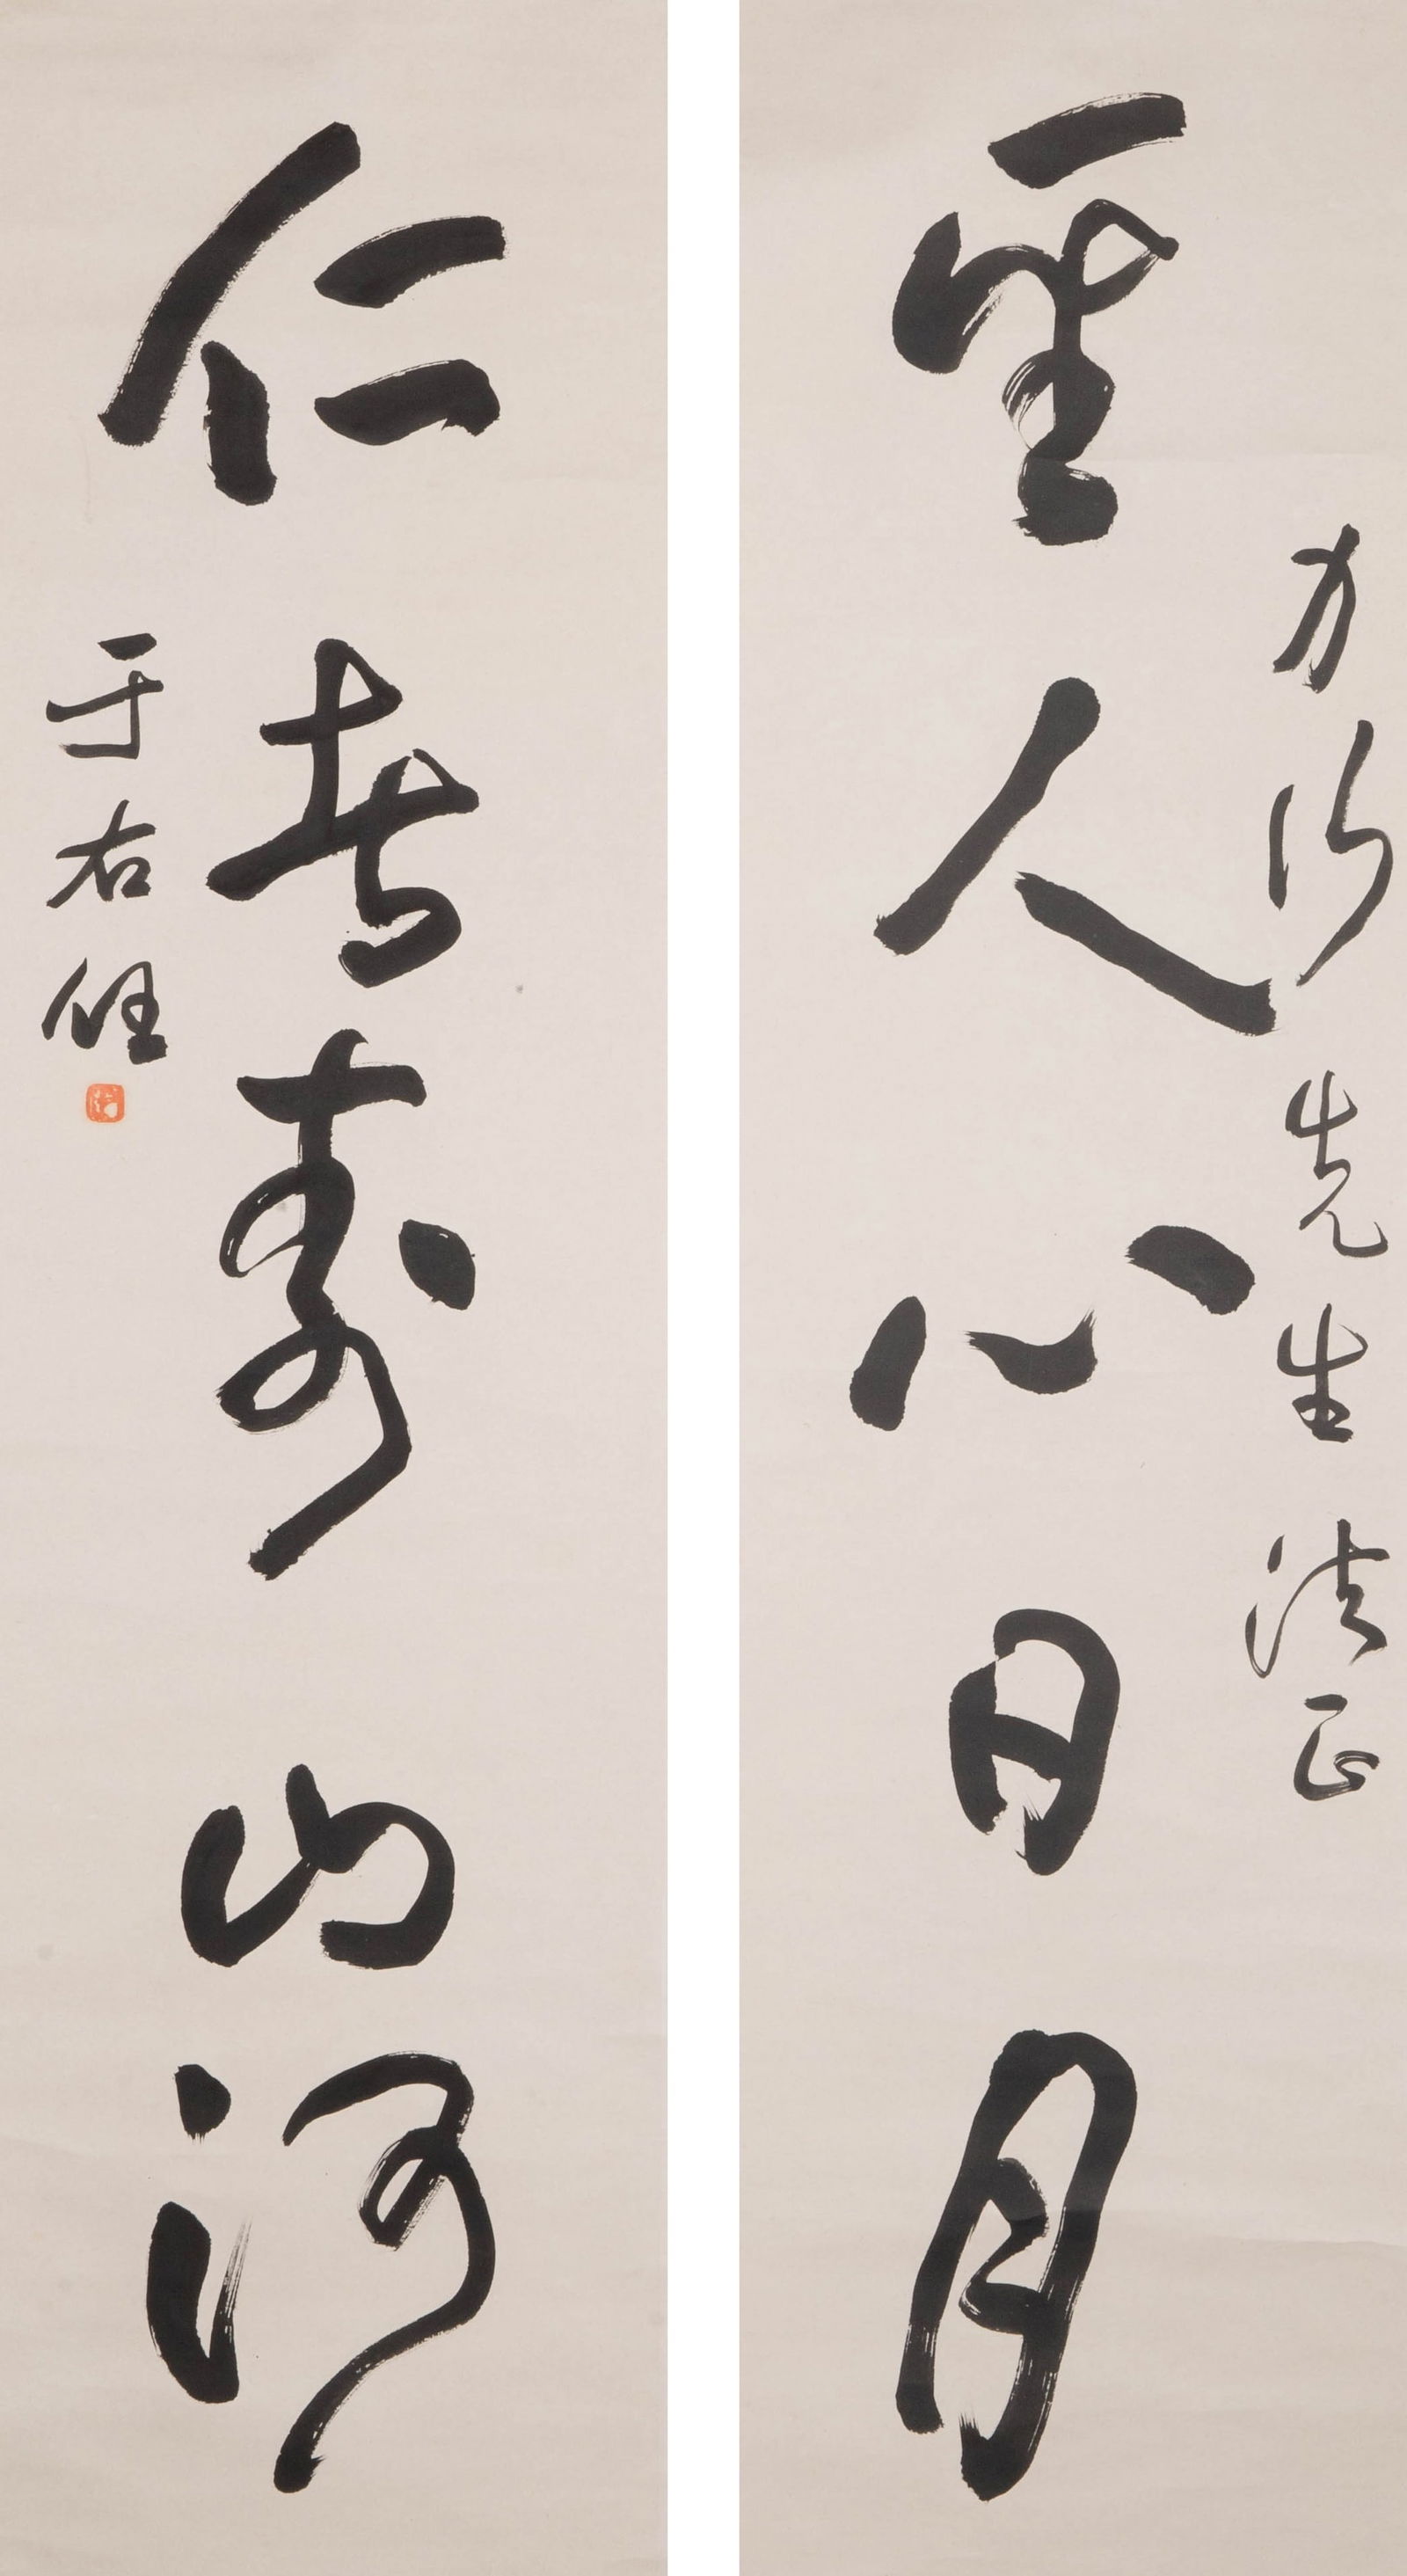 力行先生法正
聖人心日月
仁者壽山河
于右任